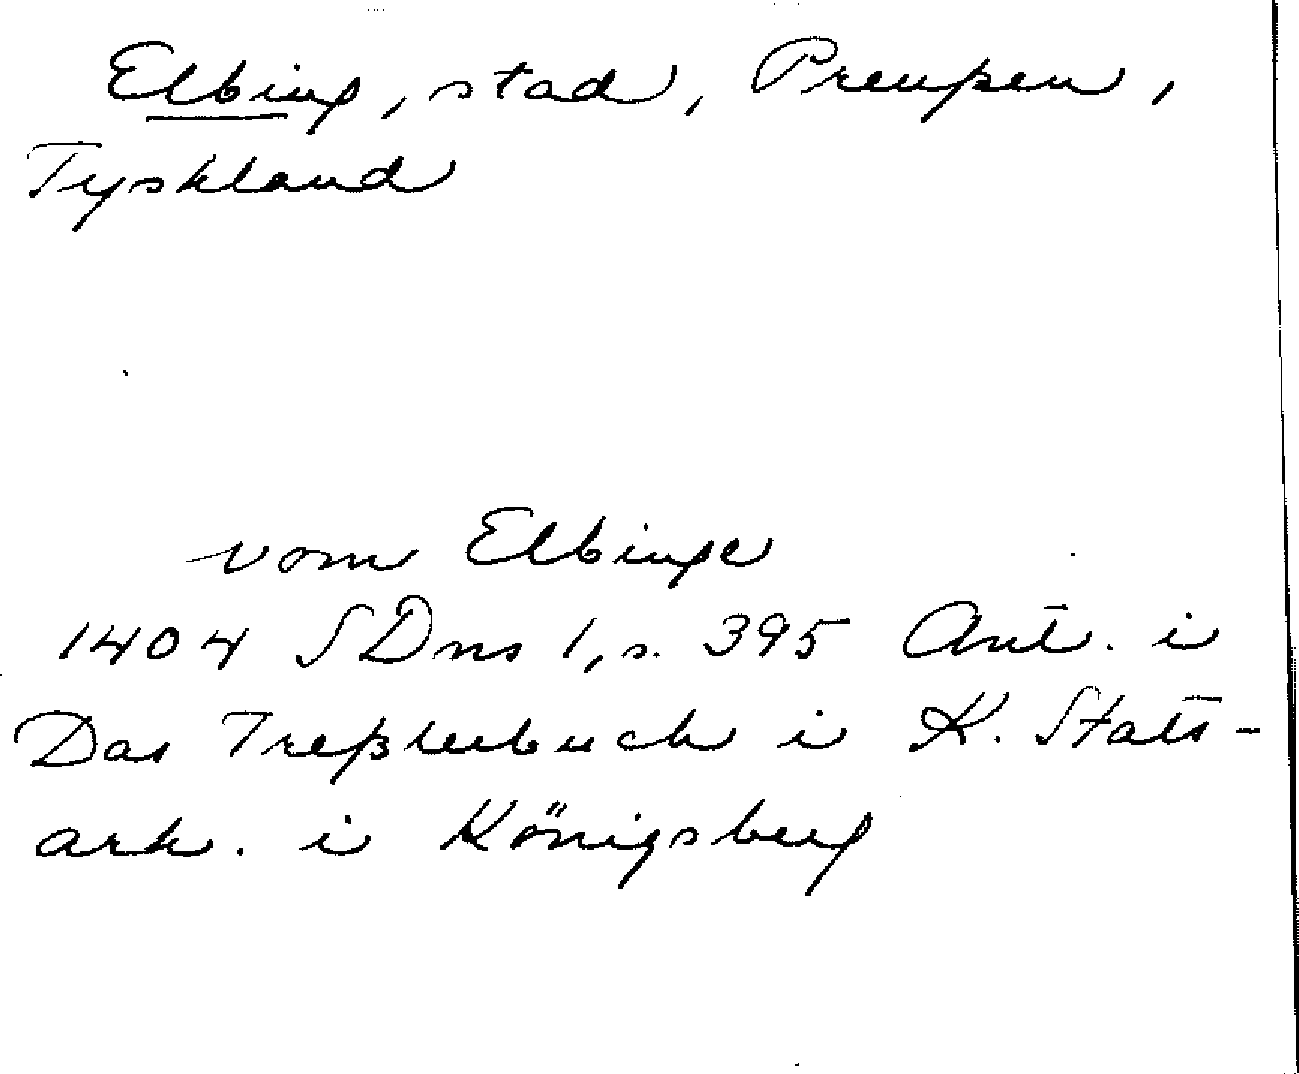 Elbing, stad, Preußen,
Tyskland
vom Elbinge
1404 SDns 1, s. 395 Ant. i
Das Treßlerbuch i K. Stats-
ark. i Königsberg